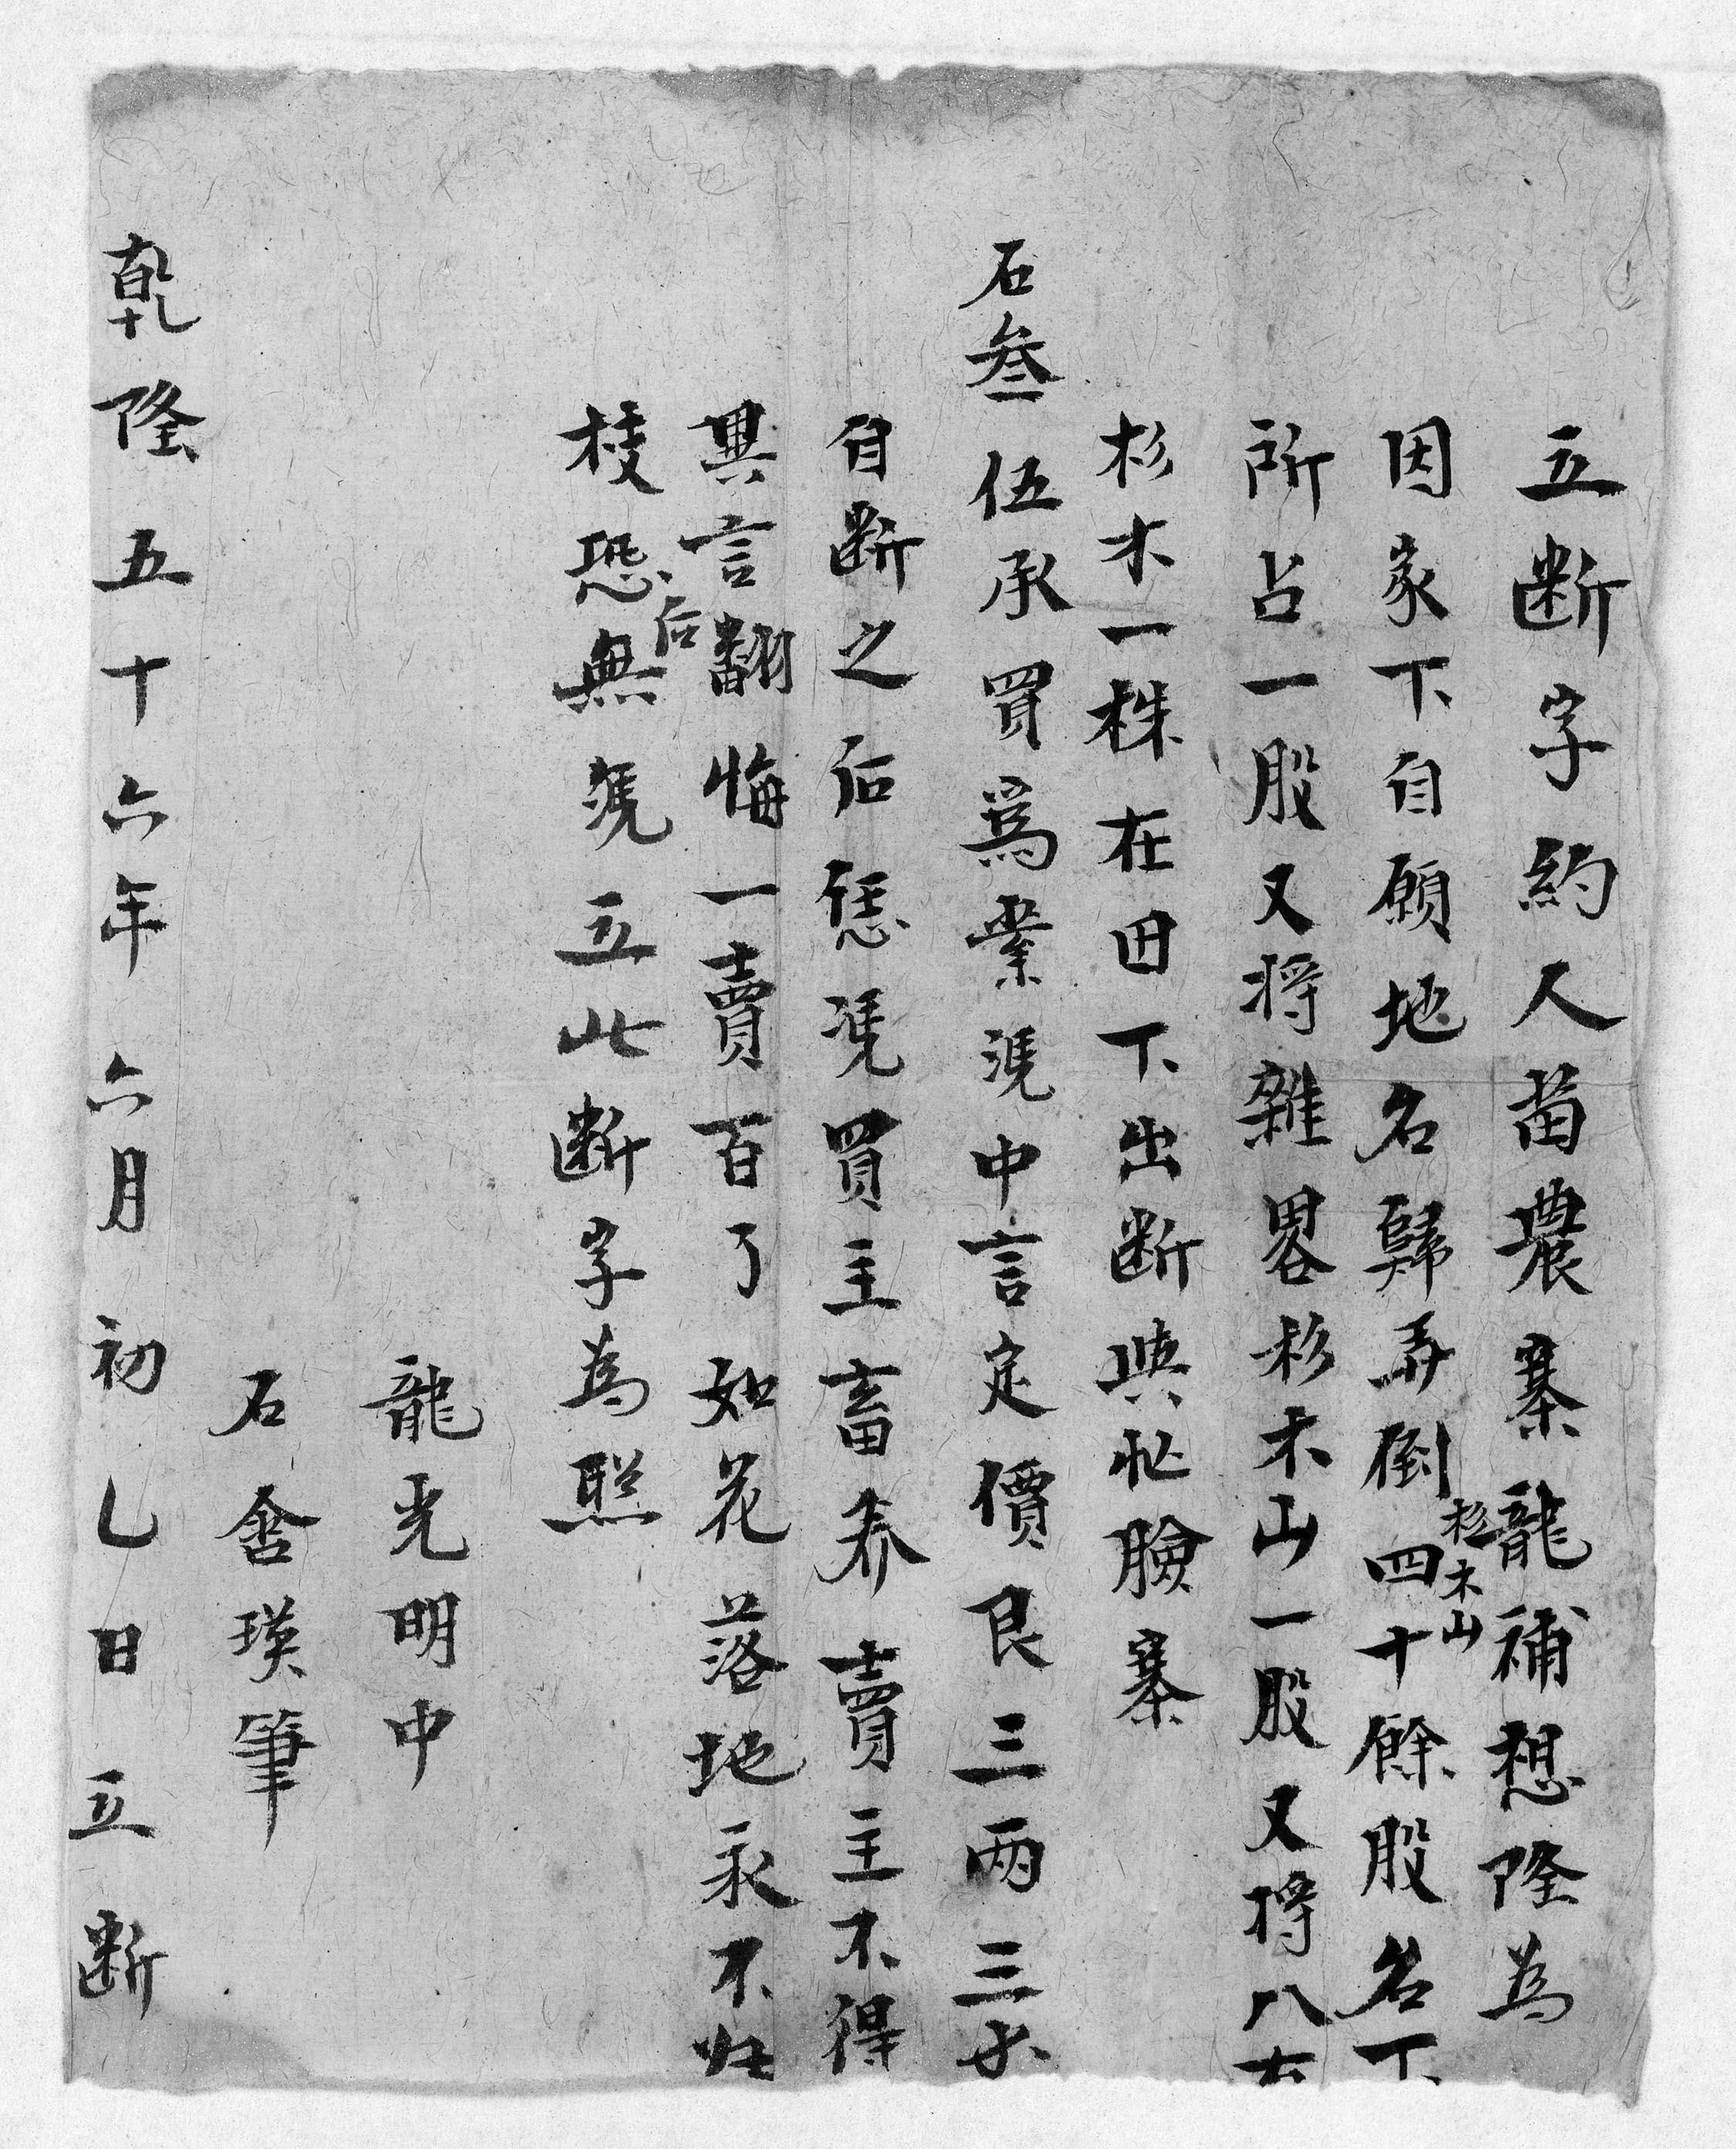 立断字約人苗農寨龍補想隆為
因家下自願地名歸弄倒杉木山四十餘股名下
所占一股又将雜畧杉木山一股又将八右
杉木一株在田下出断與忙臉寨
石叁伍承買爲業凴中言定價艮三兩三分
自断之后恁凴買主畜养賣主不得
異言翻悔一賣百了如花落地永不归
枝恐后無凴立此断字為照
龍光明中
石含瑛筆
乾隆五十六年六月初乚日立断